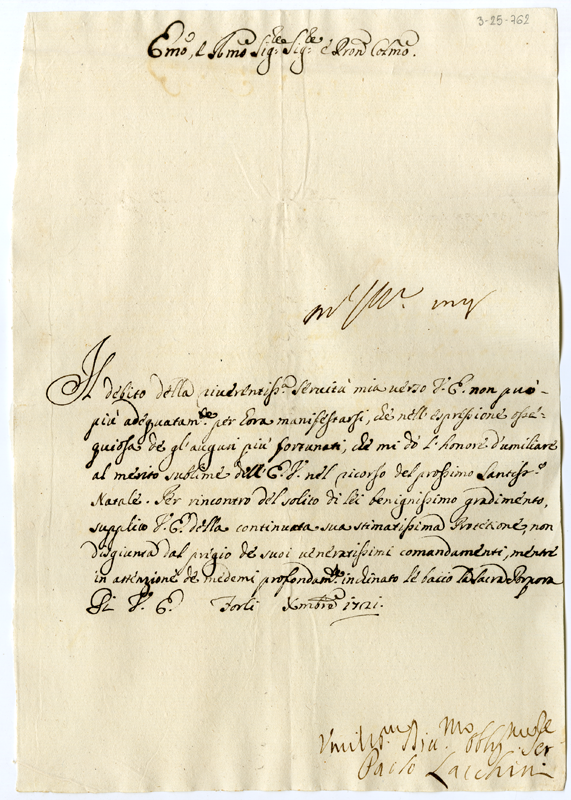 3-25-762
Emo, e Rmo Sigre Sigre e Pron Colmo.
Il debito della riverentissa servitù mia verso V. E. non può
più adequatamte per hora manifestarsi, che nell'espressione osse-
quiosa de gl'auguri più fortunati, che mi dò l'honore d'umiliare
al merito sublime dell'E. V. nel ricorso del prossimo Santisso
Natale. Per rincontro del solito di lei benignissimo gradimento,
supplico V. E. della continuata sua stimatissima Protezione, non
disgiunta dal prigio de suoi veneratissimi comandamenti, mentre
in attenzione de medemi profondamte inclinato le bacio la Sacra Porpora
Di V. E. Forlì Xmbre 1721.
Umilmo Divmo Obbligmo Ser
Paolo Zacchini